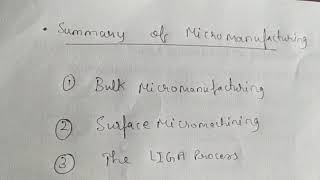 • Summary of Micromanufacturing
① Bulk Micromanufacturing
② Surface Micromachining
③ The LIGA Process